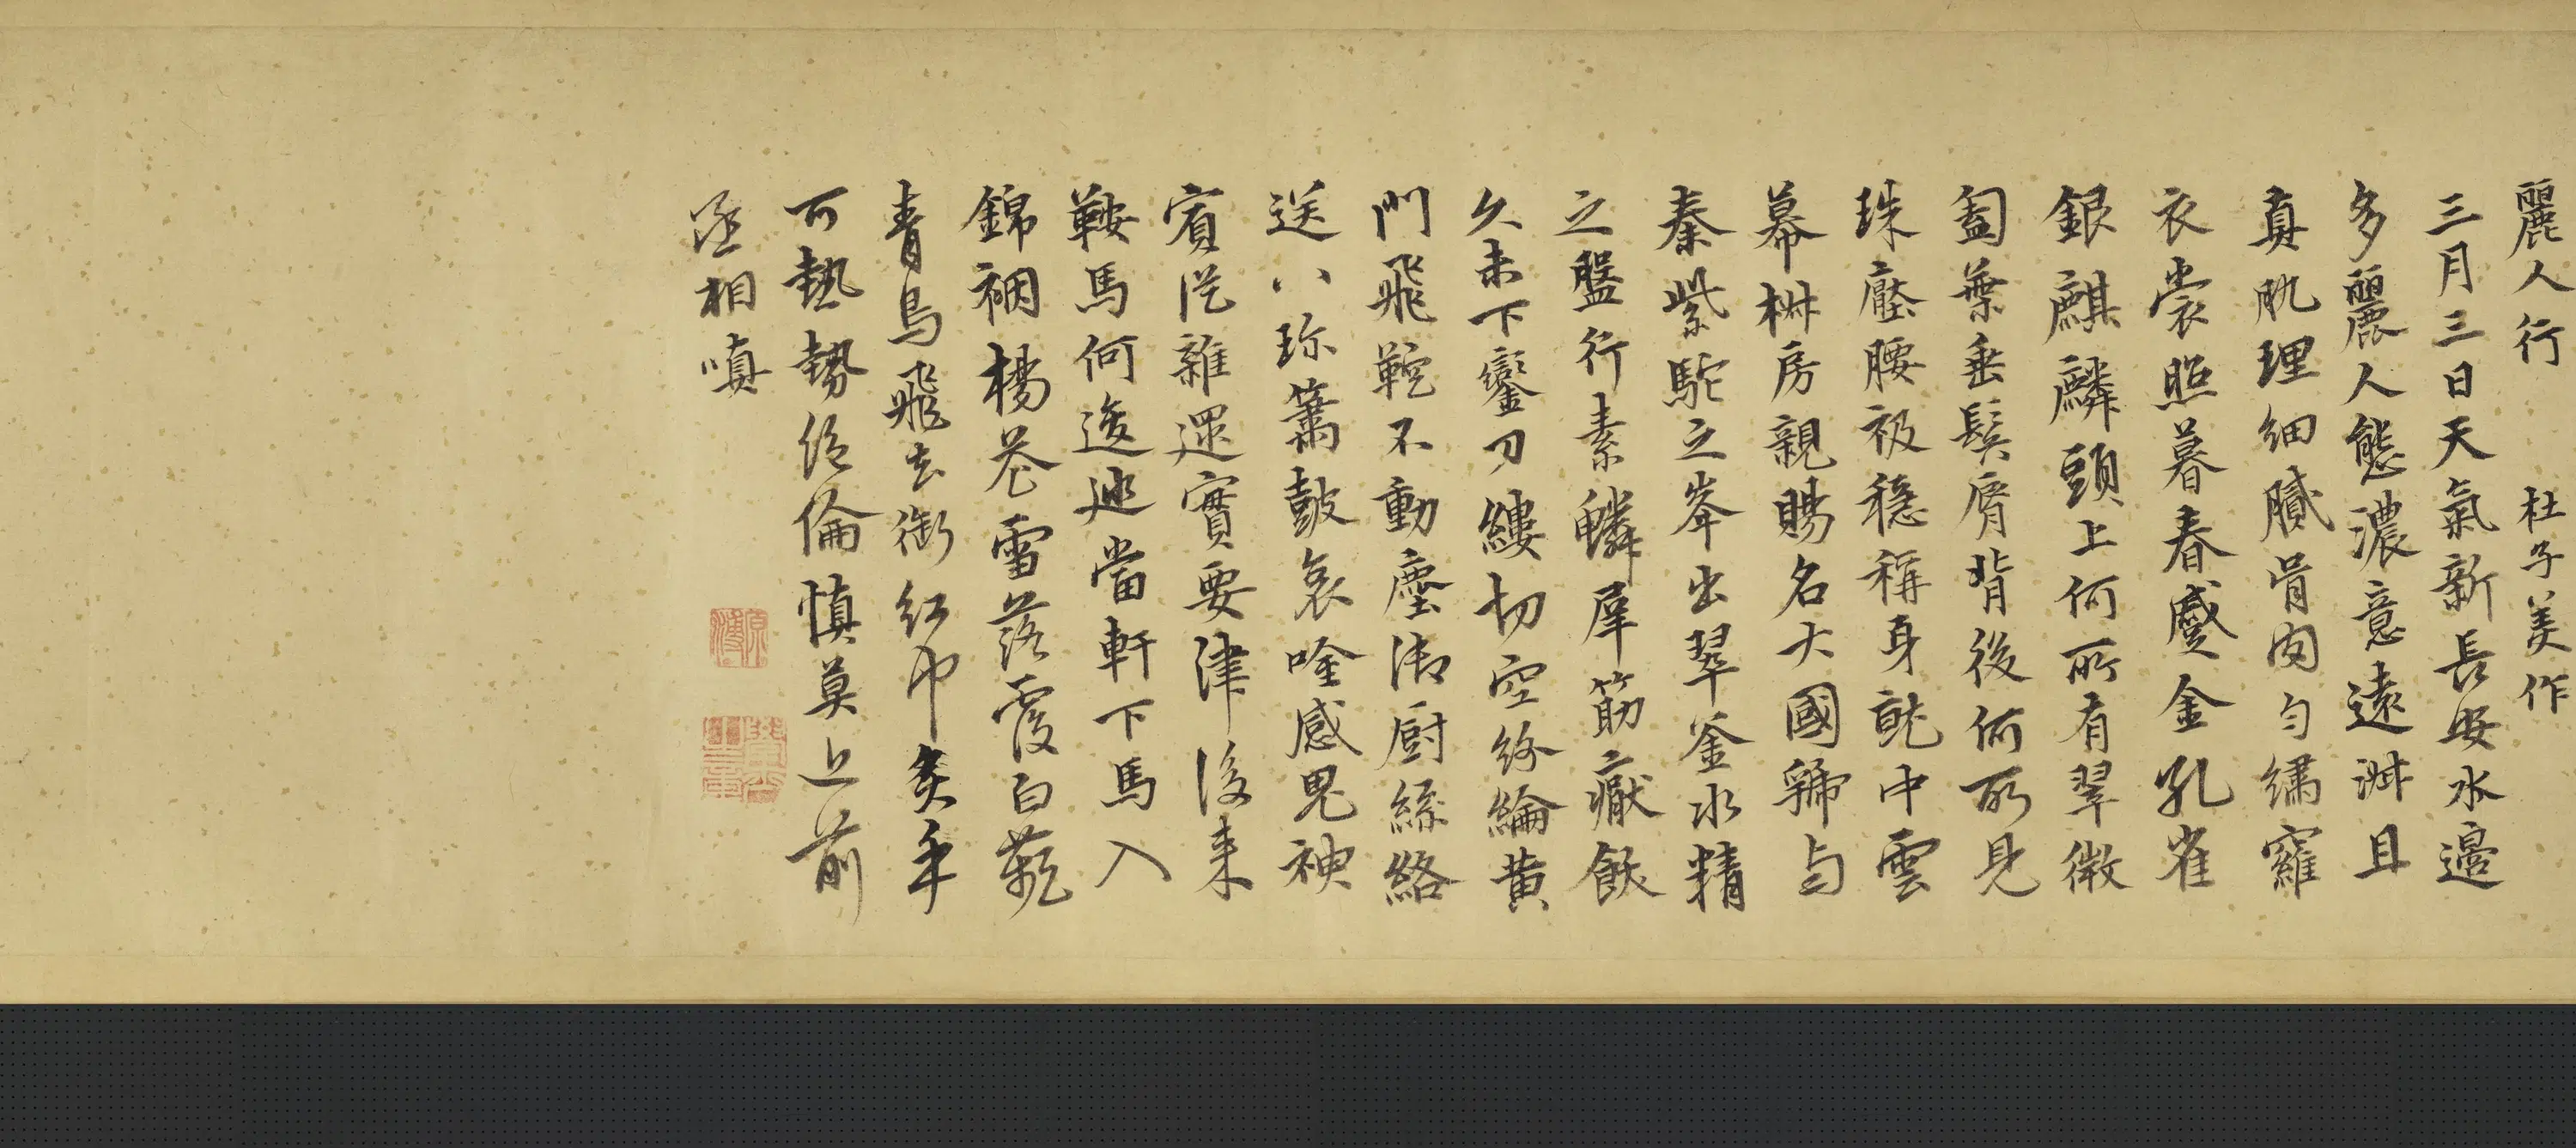 麗人行 杜子美作
三月三日天氣新長安水邊
多麗人態濃意遠淑且
真肌理細膩骨肉勻繡羅
衣裳照暮春蹙金孔雀
銀麒麟頭上何所有翠微
㔩葉垂鬢脣背後何所見
珠壓腰衱穩稱身就中雲
幕椒房親賜名大國虢與
秦紫駝之峯出翠釜水精
之盤行素鱗犀筯厭飫
久未下鑾刀縷切空紛綸黄
門飛鞚不動塵御厨絲絡
送八珎簫鼓哀唫感鬼神
賓從雜遝實要津後来
鞍馬何逡巡當軒下馬入
錦裀楊花雪落覆白蘋
青鳥飛去銜紅巾炙手
可熱勢絶倫慎莫近前
丞相嗔